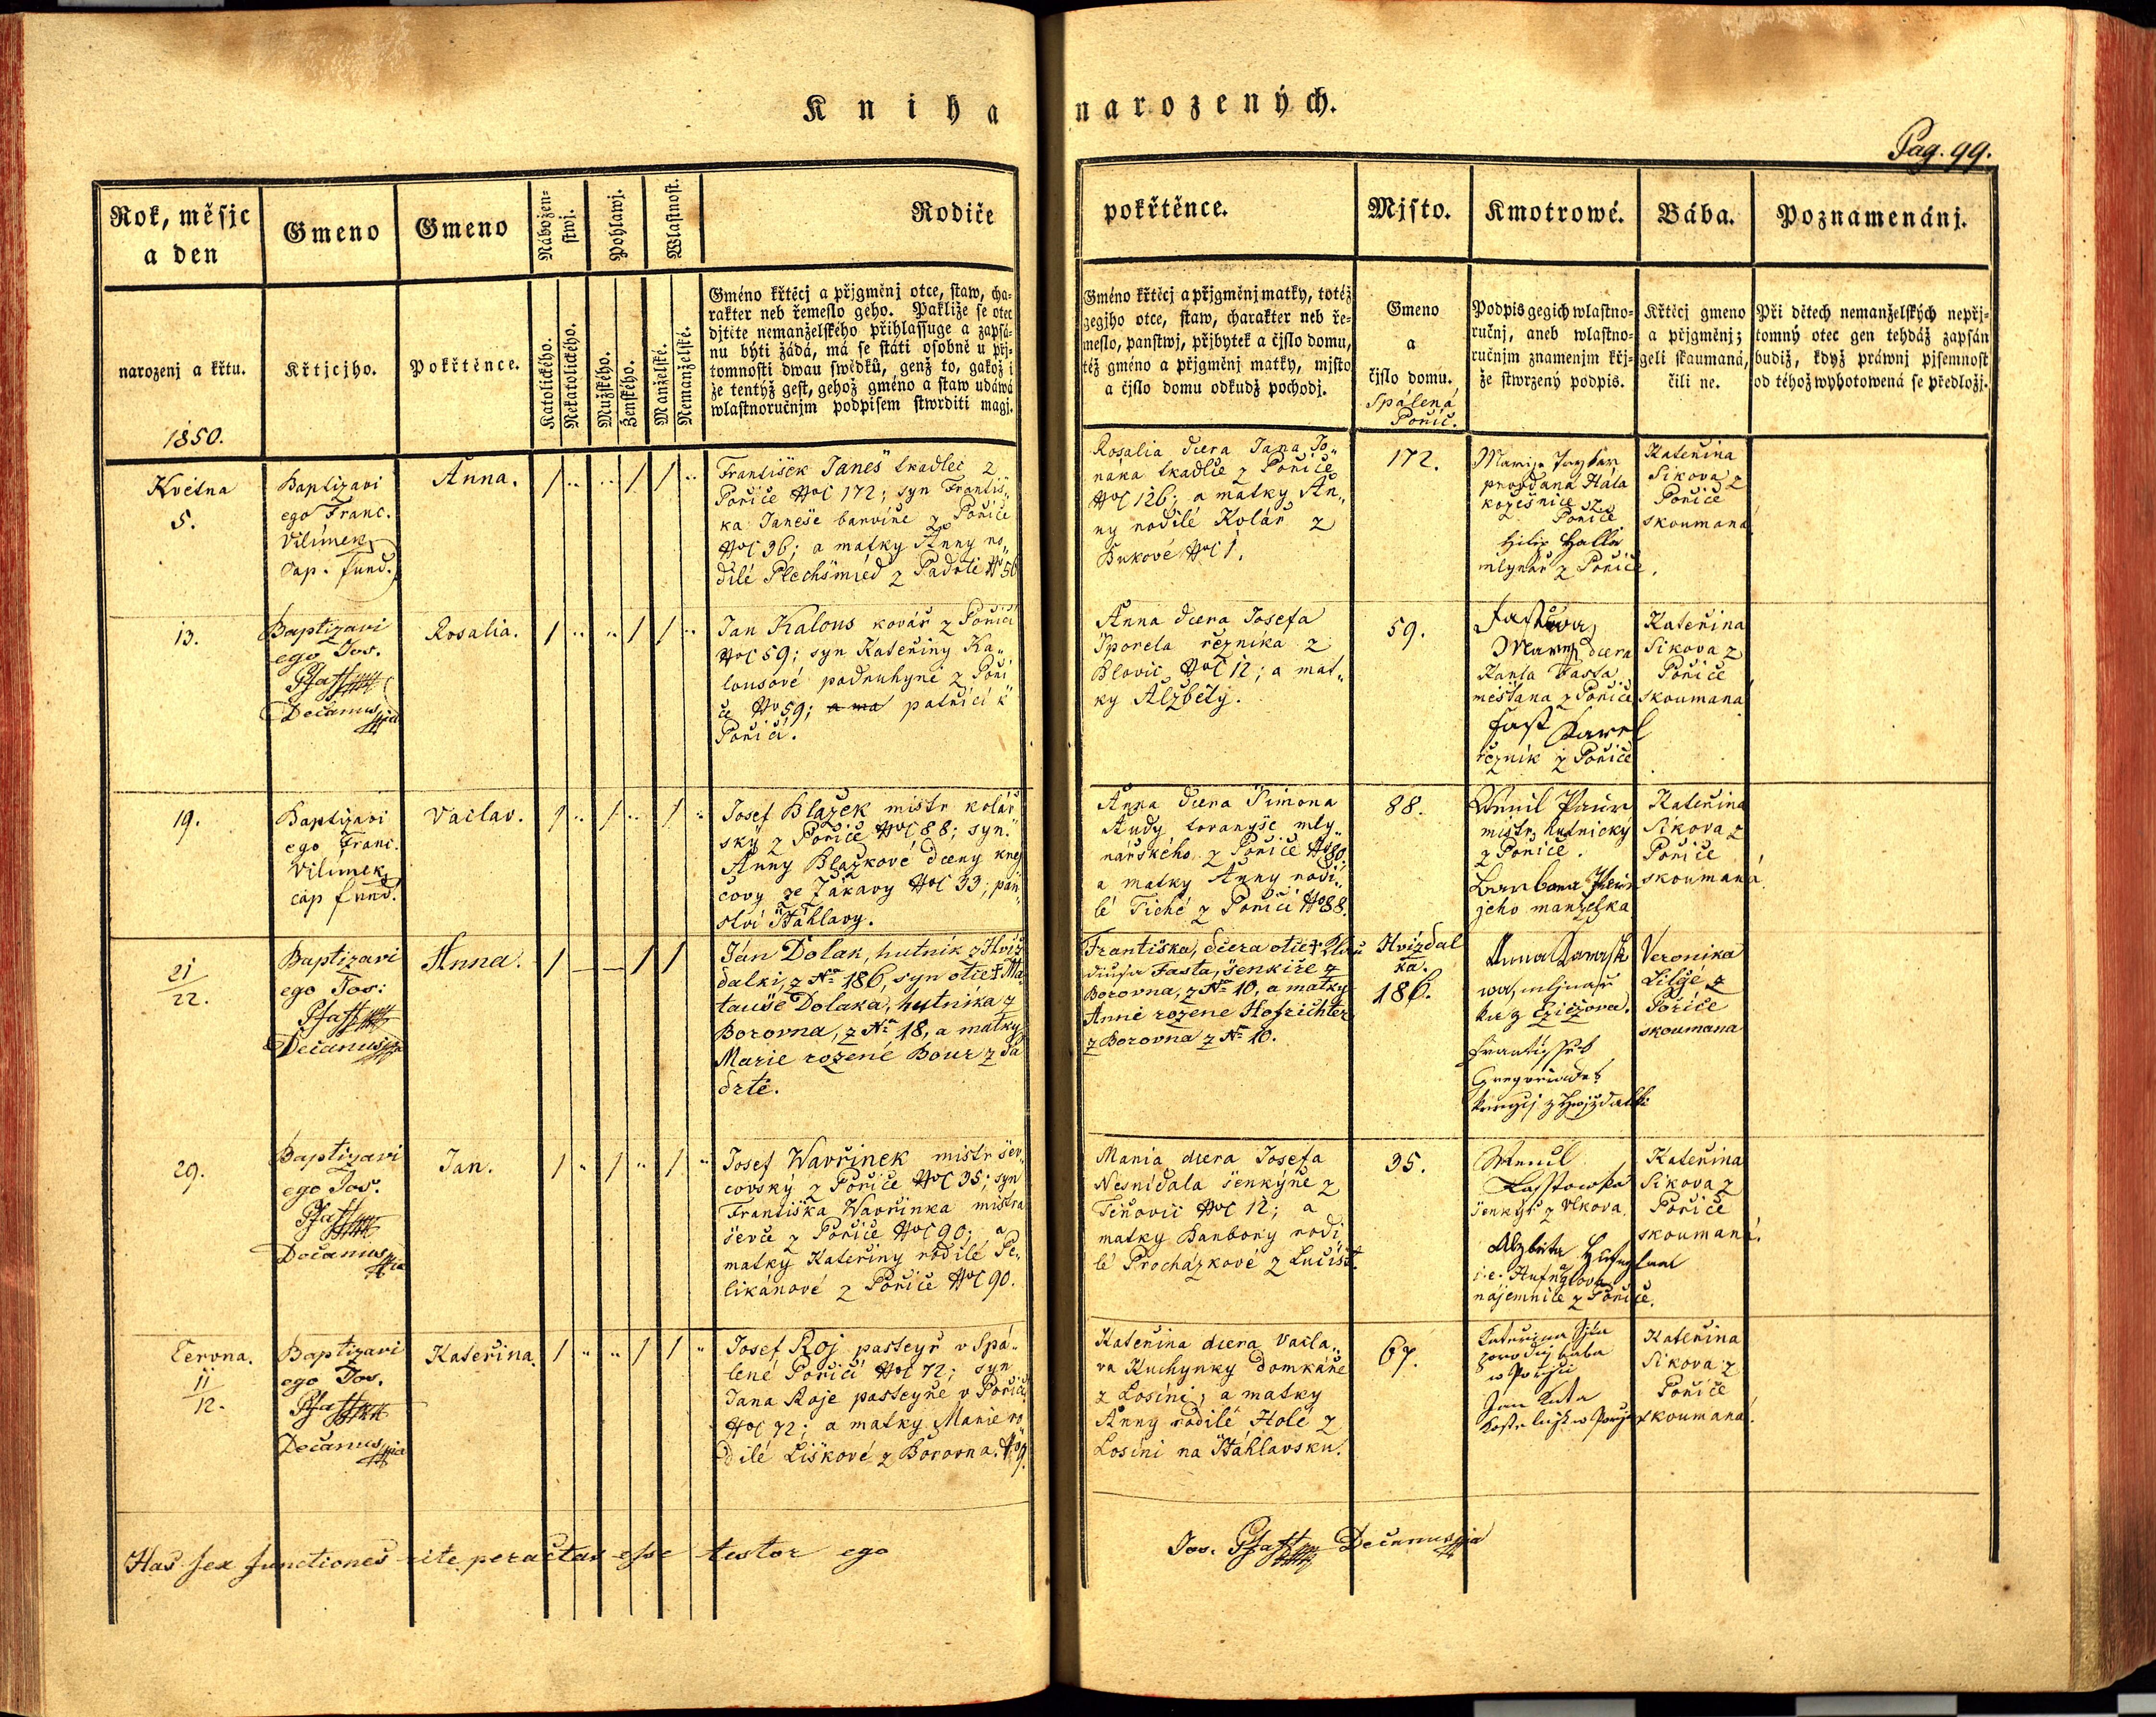 Kniha narozených.
Pag. 99.
Rok, měsjc
a den
narozenj a křtu.
1850.
Gmeno
Křtjcjho.
Gmeno
Pokřtěnce.
Nábožen-
stwj.
Katolického.
Nekatolického.
Pohlawj.
Mužského.
Ženského.
Wlastnost.
Manželské.
Nemanželské.
Rodiče
Gméno křtěcj a přjgměnj otce, staw, cha-
rakter neb řemeslo geho. Paklize se otec
djtěte nemanželského přihlassuge a zapsá-
nu býti žádá, má se státi osobně u přj-
tomnosti dwau swědků, genž to, gakož i
že tentýž gest, gehož gméno a staw udáwá
wlastnoručnjm podpisem stwrditi magj.
pokřtěnce.
Gméno křtěcj a přjgměnj matky, totéž
gegjho otce, staw, charakter neb ře-
meslo, panstwj, přjbytek a čjslo domu,
též gméno a přjgměnj matky, mjsto
a čjslo domu odkudž pochodj.
Mjsto.
Gmeno
a
čjslo domu.
Spálená
Pořič.
Kmotrowé.
Podpis gegich wlastno-
ručnj, aneb wlastno-
ručnjm znamenjm křj-
že stwrzený podpis.
Bába.
Křtěcj gmeno
a přjgměnj;
geli skaumaná,
čili ne.
Poznamenánj.
Při dětech nemanželských nepřj-
tomný otec gen tehdáž zapsán
budiž, když práwnj pjsemnost
od téhož wyhotowená se předložj.
Května
5.
Baptizavi
ego Franc.
Vilímek
cap. fund.
Anna.
František Janeš tkadlec z
Pořiče Noč 172; syn Františ„
ka Janeše barvíře z Pořiče
Noč 96; a matky Anny ro„
dilé Plechšmied z Padrtě No 56
Rosalia dcera Jana
tkadlce z Pořiče
Noč 126; a matky An„
ny rodilé Kolář z
Bukové Noč 1.
172.
provdana Hála
kožešnice z
Pořiče
Filip Halla
mlynář z Pořiče.
Kateřina
Sikova z
Pořiče
skoumaná
13.
Baptizavi
ego Jos.
Pfaff
Decanus
Rosalia.
Jan Kalous kovář z Pořiči
Noč 59; syn Kateřiny Ka„
lousové podruhyně z Poři
če No 59; a ma patřící k
Pořiči.
Anna dcera Josefa
Šporela řezníka z
Blovic Noč 12; a mat„
ky Alžběty.
59.
dcera
Karla Fasta
měšťana z Pořiče
Fast Karel
řezník z Pořiče
Kateřina
Sikova z
Pořiče
skoumaná
19.
Baptizavi
ego Franc.
Vilímek
cap fund.
Vaclav.
Josef Blažek mistr kolář
ský z Pořiče Noč 88; syn
Anny Blažkové dcery krej
čovy ze Žákavy Noč 33; pan„
ství Šťáhlavy.
Anna dcera Šimona
Audy tovaryše mly„
nářského z Pořiče No 80.
a matky Anny rodi„
lé Tiché z Pořiči No 88.
88.
mistr hutnický
z Pořiče.
jeho manželka
Kateřina
Sikova z
Pořiče
skoumaná.
21
22.
Baptizavi
ego Jos:
Pfaff
Decanus
Anna.
Ján Dolak, hutník z Hvíž
dalki, z No 186, syn otce † Ma
tauše Dolaka, hutníka z
Borovna, z No 18, a matky
Marie rozené Bour z Pa
drtě.
Františka, dcera otce †
Fasta, šenkíře z
Borovna, z No 10, a matky
Anné rozené Hofrichter
z Borovna z No 10.
Hvizdal
ka.
186.
Veronika
Z
Pořiče
skoumana
29.
Baptizavi
ego Jos.
Pfaff
Decanus
Jan.
Josef Wavřinek mistr šev„
covský z Pořiče Noč 35; syn
Františka Wavřinka mistra
ševce z Pořiče Noč 90; a
matky Kateřiny rodilé Pe„
likánové z Pořiče Noč 90.
Maria dcera Josefa
Nesnídala šenkýře z
Tiňovic Noč 12; a
matky Barbory rodi„
lé Procházkové z Lučišť.
35.
šenkýř z Vlkova.
Alzběta
nájemnice z Pořiče.
Kateřina
Sikova z
Pořiče
skoumaná.
Června.
11
12.
Baptizavi
ego Jos.
Pfaff
Decanus
Kateřina.
Josef Roj pasteyř v Spá„
lené Pořiči Noč 72; syn
Jana Roje pasteyře v Pořiči
Noč 72; a matky Marie ro
dilé Liškové z Borovna. No 9.
Kateřina dcera Vacla„
va Kuchynky domkáře
z Losiné; a matky
Anny rodilé Holé z
Losini na Šťáhlavsku.
67.
Kateřina
baba
Jan
Kateřina
Sikova z
Pořiče
skoumaná.
Has sex functiones rite peractas esse testor ego
Jos. Pfaff Decanus